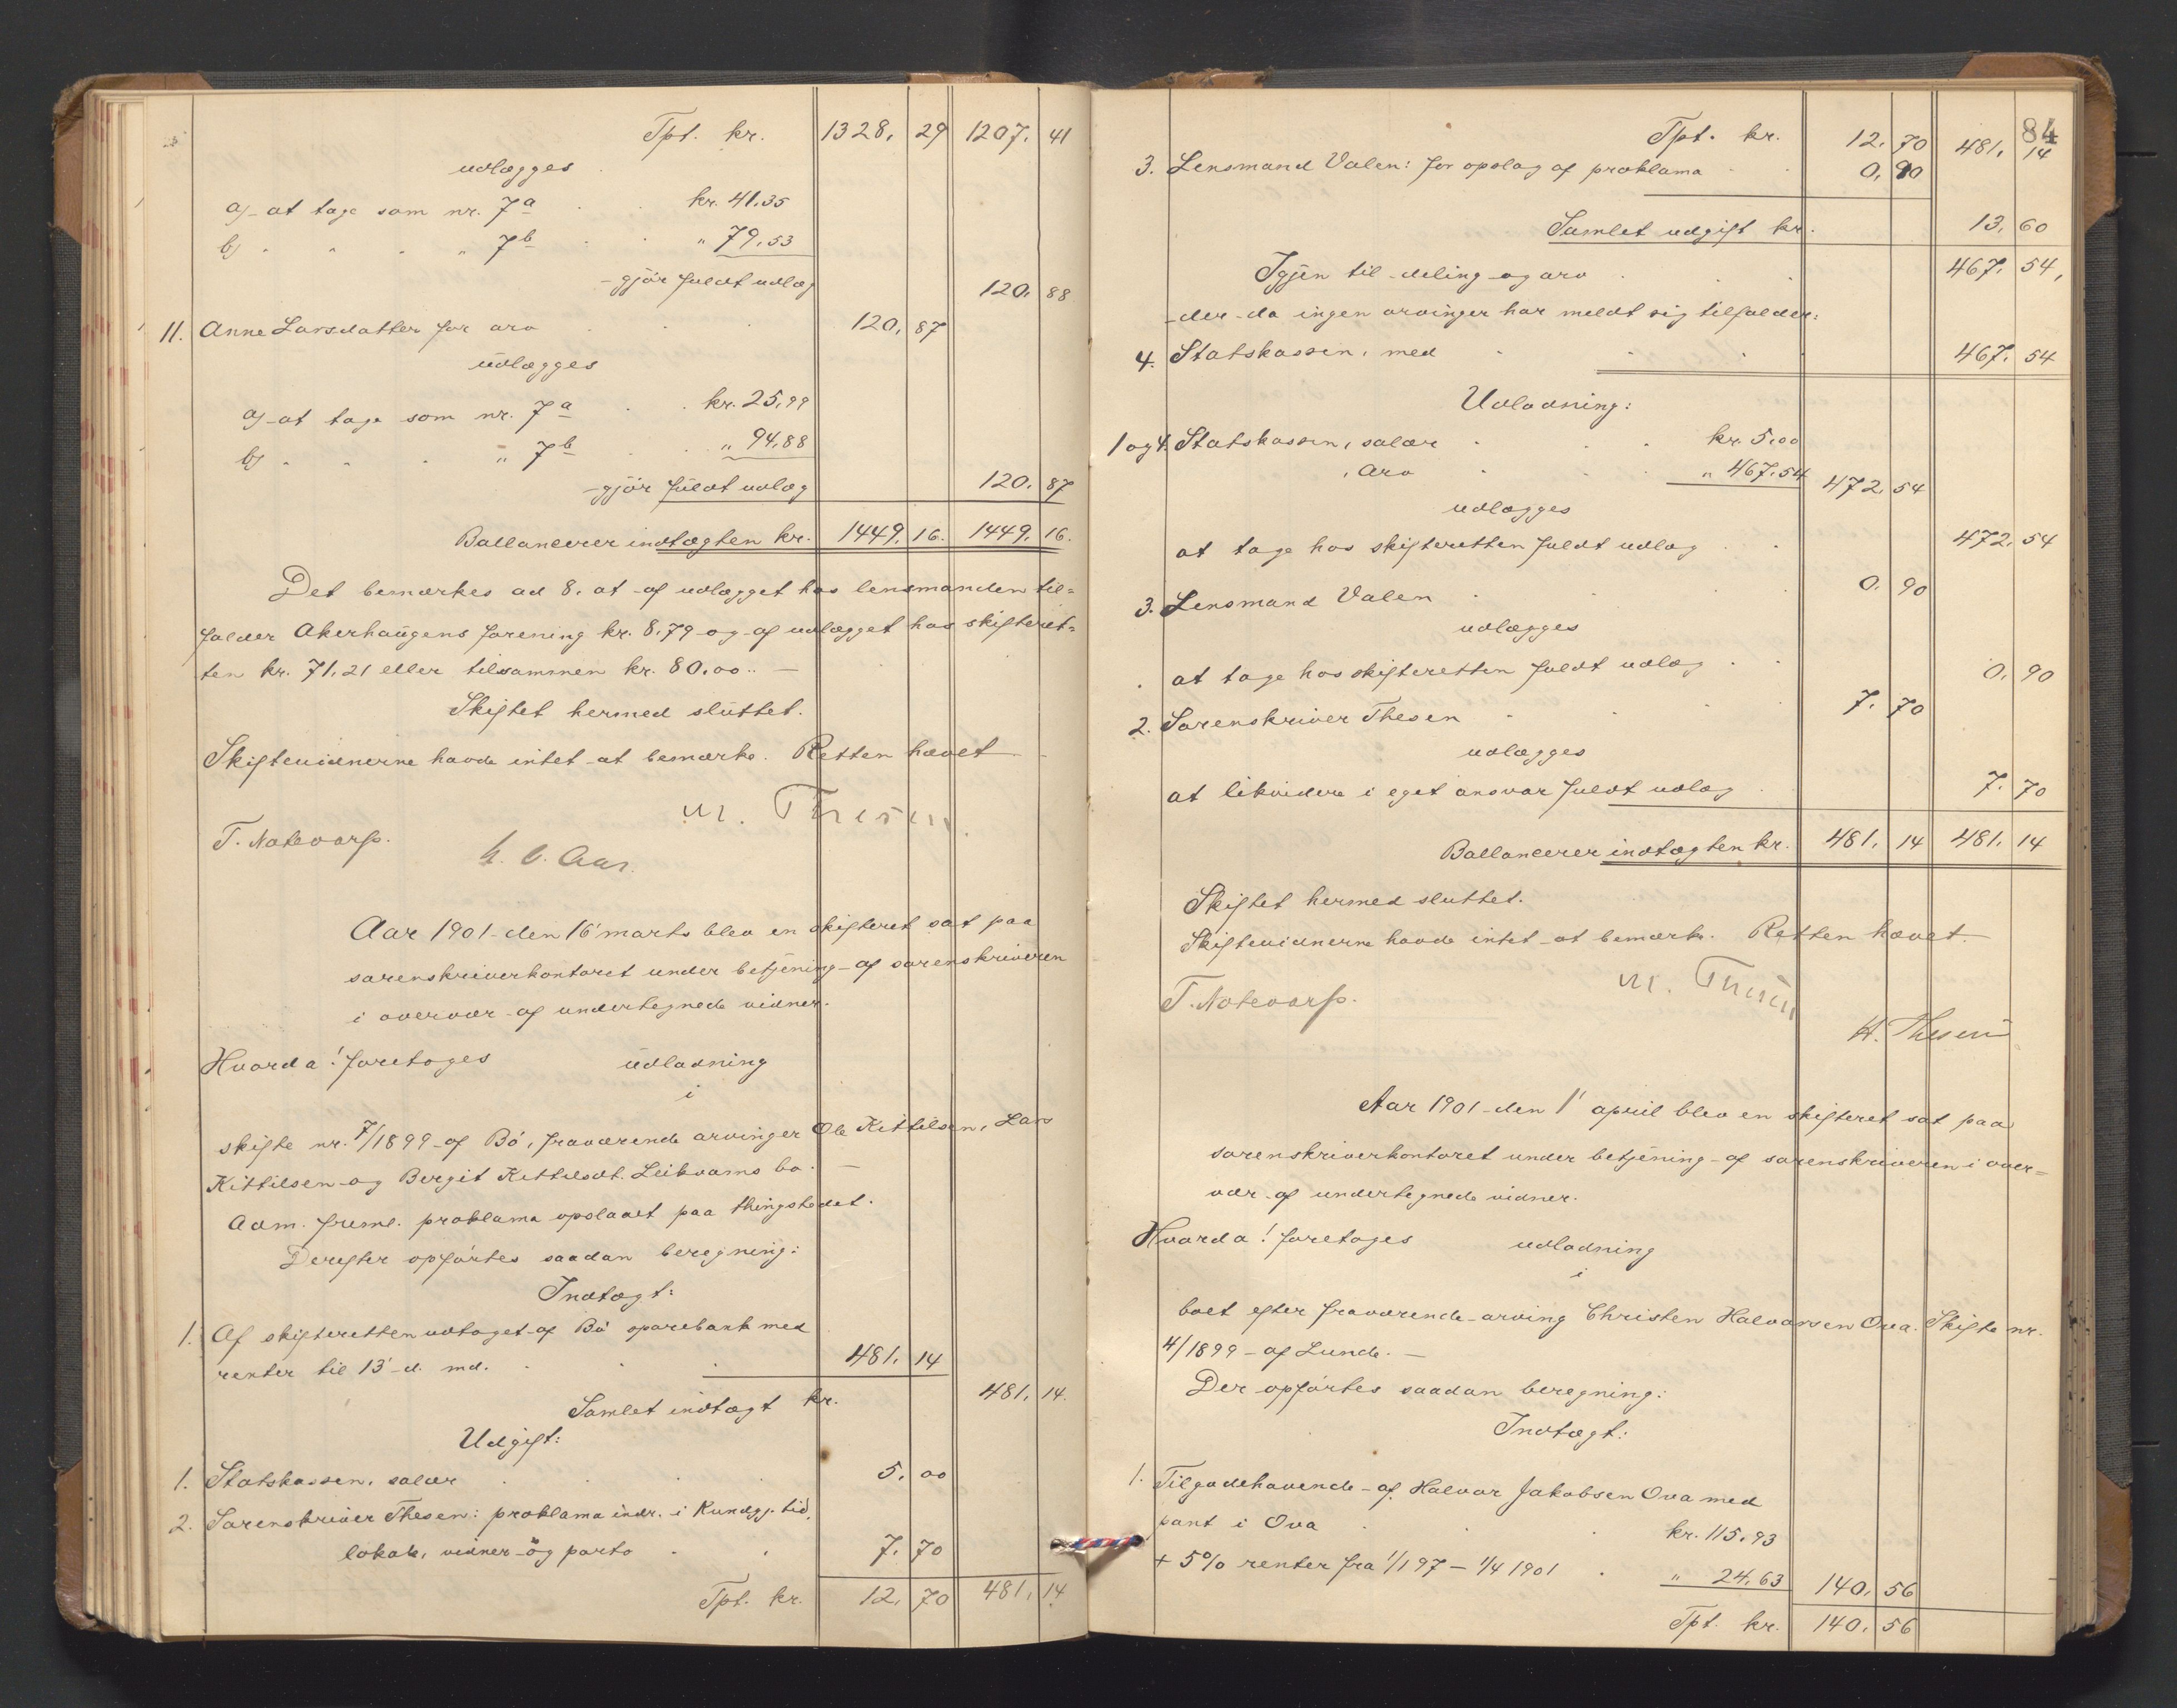 Tpt. kr. 1328, 29 1207, 41
udlægges
a) at tage som nr. 7a kr. 41,35
b) " " " " 7b " 79,53
gjør fuldt udlæg 120, 88
11. Anne Larsdatter for arv 120, 87
udlægges
a) at tage som nr. 7a kr. 25,99
b) " " " " 7b " 94,88
gjør fuldt udlæg 120, 87
Ballancerer indtægten kr. 1449, 16. 1449, 16.
Det bemærkes ad 8. at af udlægget hos lensmanden til=
falder Akerhaugens forening kr. 8,79 og af udlægget hos skifteret=
ten kr. 71,21 eller tilsammen kr. 80,00. —
Skiftet hermed sluttet.
Skiftevidnerne havde intet at bemærke. Retten hævet
M. Thesen.
T. Notevarp.
Aar 1901 den 16' marts blev en skifteret sat paa
sorenskriverkontoret under betjening af sorenskriveren
i overvær af undertegnede vidner.
Hvorda! foretoges udlodning
i
skifte nr. 7/1899 af Bø, fraværende arvinger Ole Kittilsen, Lars
Kittilsen og Bergit Kittilsdt. Leikvams bo. —
Adm. freml. proklama opslaaet paa thingstedet.
Derefter opførtes saadan beregning:
Indtægt:
1. Af skifteretten udtaget af Bø sparebank med
renter til 13' d. md. 481, 14
Samlet indtægt kr. 481, 14.
Udgift:
1. Statskassen, salær 5, 00
2. Sorenskriver Thesen: proklama indr. i Kundgj. tid,
lokale, vidner og porto 7, 70
Tpt. kr. 12, 70 481, 14
84
Tpt. kr. 12, 70 481, 14
3. Lensmand Valen: for opslag af proklama 0, 90
Samlet udgift kr. 13, 60
Igjen til deling og arv 467, 54,
der da ingen arvinger har meldt sig tilfalder:
4. Statskassen, med 467, 54
Udlodning:
1 og 4. Statskassen, salær kr. 5,00
, arv " 467,54 472, 54
udlægges
at tage hos skifteretten fuldt udlæg 472, 54
3. Lensmand Valen 0, 90
udlægges
at tage hos skifteretten fuldt udlæg 0, 90
2. Sorenskriver Thesen 7, 70
udlægges
at likvidere i eget ansvar fuldt udlæg 7, 70
Ballancerer indtægten kr. 481, 14 481, 14
Skiftet hermed sluttet.
Skiftevidnerne havde intet at bemærke. Retten hævet.
M. Thesen
T. Notevarp.
H. Thesen
Aar 1901 den 1' april blev en skifteret sat paa
sorenskriverkontoret under betjening af sorenskriveren i over=
vær af undertegnede vidner.
Hvorda! foretoges udlodning
i
boet efter fraværende arving Christen Halvorsen Ova. Skifte nr.
4/1899 af Lunde. —
Der opførtes saadan beregning:
Indtægt:
1. Tilgodehavende af Halvor Jakobsen Ova med
pant i Ova kr. 115,93
+ 5% renter fra 1/1 97 – 1/4 1901 " 24,63 140, 56
Tpt. kr. 140, 56